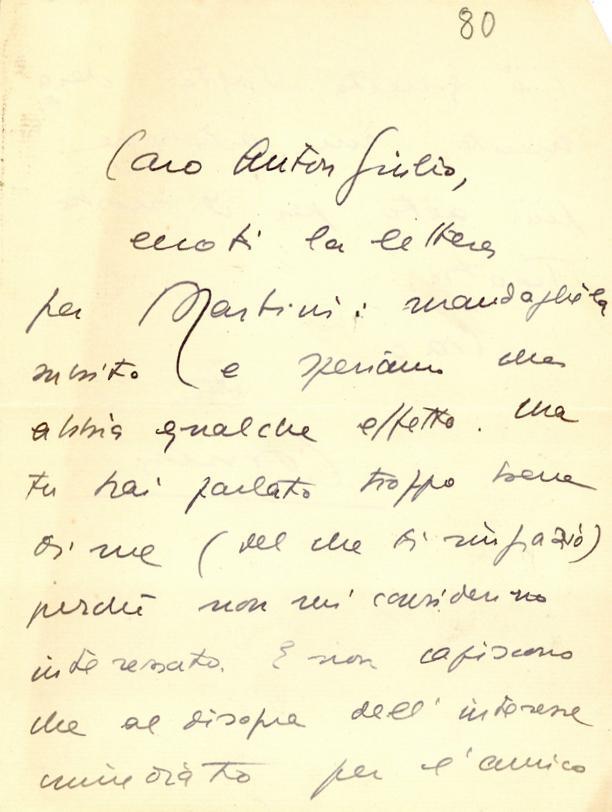 80
Caro Anton Giulio,
eccoti la lettera
per Martini: mandagliela
subito e speriamo che
abbia qualche effetto. Ma
tu hai parlato troppo bene
di me (del che ti ringrazio)
perché non mi considerino
interessato. E non capiscono
che al disopra dell'interesse
immediato per l'amico